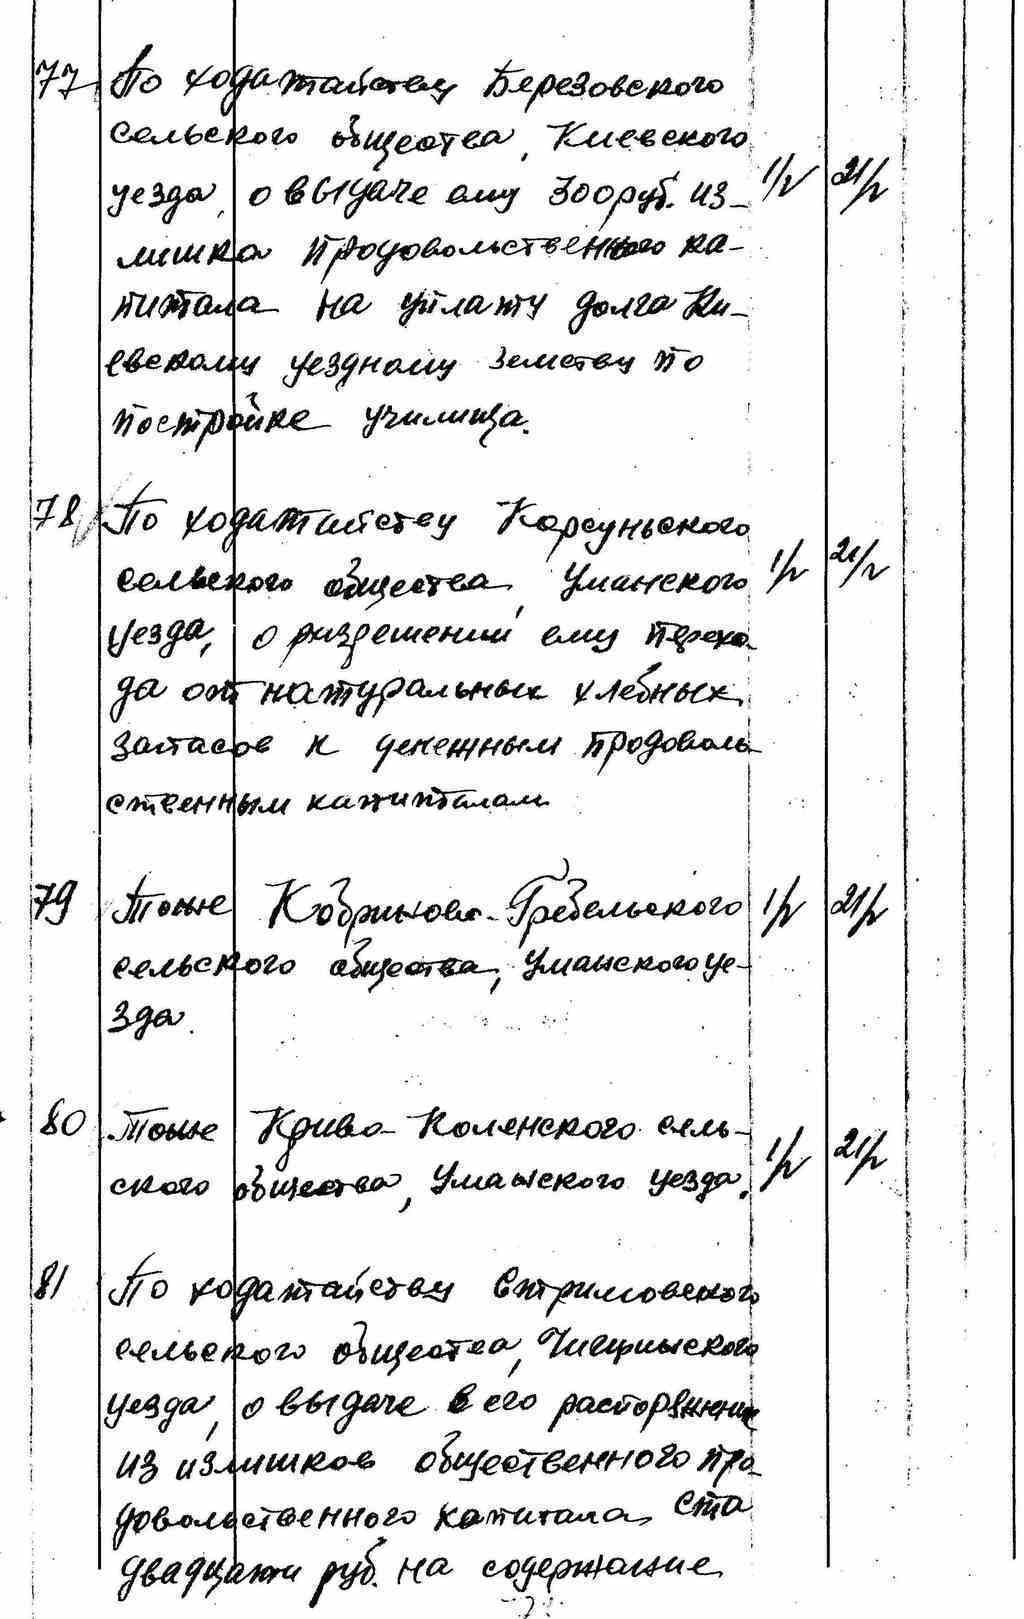 77 По ходатайству Березовского
сельского общества, Киевского
уезда, о выдаче ему 300 руб. из- 1/V 21/V
лишка продовольственного ка-
питала на уплату долга Ки-
евскому уездному земству по
постройке училища.
78 По ходатайству Корсуньского
сельского общества, Уманского 1/V 21/V
уезда, о разрешении ему перехо-
да от натуральных хлебных
запасов к денежным продоволь-
ственным капиталам
79 Тоже Кобриново-Гребельского 1/V 21/V
сельского общества, Уманского уе-
зда.
80 Тоже Криво-Коленского сель-
ского общества, Уманского уезда. 1/V 21/V
81 По ходатайству
сельского общества,
уезда, о выдаче в его распоряжение
из излишков общественного про-
довольственного капитала ста
двадцати руб. на содержание